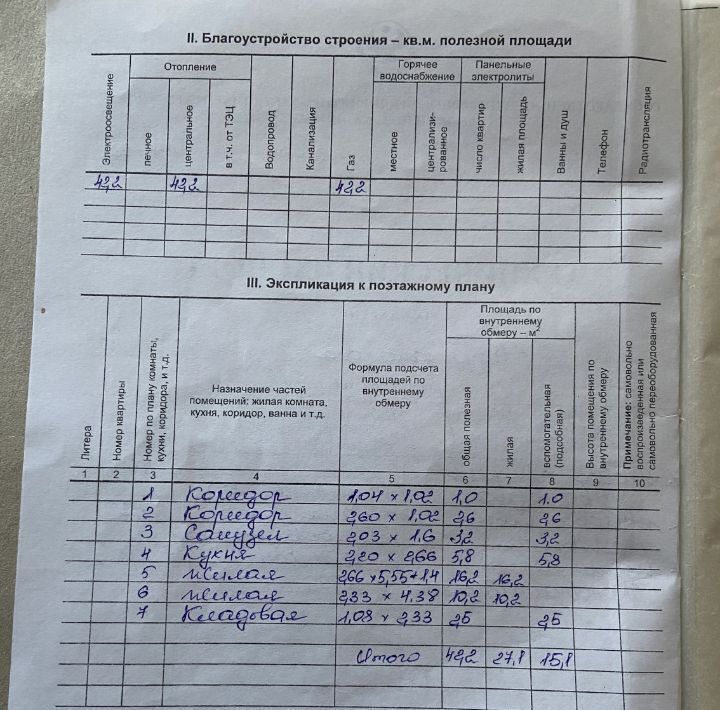 II. Благоустройство строения – кв.м. полезной площади
Электроосвещение
Отопление
печное
центральное
в т.ч. от ТЭЦ
Водопровод
Канализация
Газ
Горячее
водоснабжение
местное
централизи-
рованное
Панельные
электролиты
число квартир
жилая площадь
Ванны и душ
Телефон
Радиотрансляция
42,2 42,2 42,2
III. Экспликация к поэтажному плану
Литера
Номер квартиры
Номер по плану комнаты,
кухни, коридора, и т.д.
Назначение частей
помещений: жилая комната,
кухня, коридор, ванна и т.д.
Формула подсчета
площадей по
внутреннему
обмеру
Площадь по
внутреннему
обмеру – м²
общая полезная
жилая
вспомогательная
(подсобная)
Высота помещения по
внутреннему обмеру
Примечание: самовольно
воспроизведенная или
самовольно переоборудованная
1 2 3 4 5 6 7 8 9 10
1 Коридор 1,04 × 1,02 1,0 1,0
2 Коридор 2,60 × 1,02 2,6 2,6
3 Санузел 2,03 × 1,6 3,2 3,2
4 Кухня 2,20 × 2,66 5,8 5,8
5 жилая 2,66 × 5,55 + 1,4 16,2 16,2
6 жилая 2,33 × 4,38 10,2 10,2
7 Кладовая 1,08 × 2,33 2,5 2,5
Итого 42,2 27,1 15,1